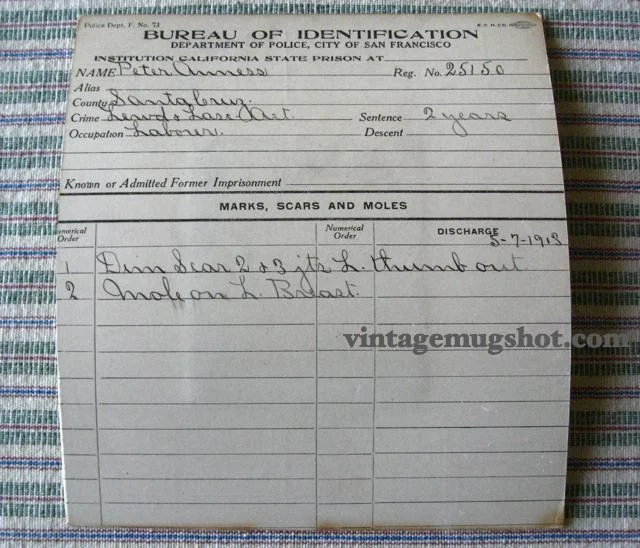 Police Dept. F. No. 73
BUREAU OF IDENTIFICATION
DEPARTMENT OF POLICE, CITY OF SAN FRANCISCO
INSTITUTION CALIFORNIA STATE PRISON AT
NAME Peter Anness Reg. No. 25150
Alias
County Santa Cruz.
Crime Lewd & Lasc Act. Sentence 2 years
Occupation Laborer. Descent
Known or Admitted Former Imprisonment
MARKS, SCARS AND MOLES
umerical Order Numerical Order DISCHARGE
5-7-1913
1 Dim Scar 2 & 3 jts L. thumb out
2 Mole on L. Breast.
vintagemugshot.com